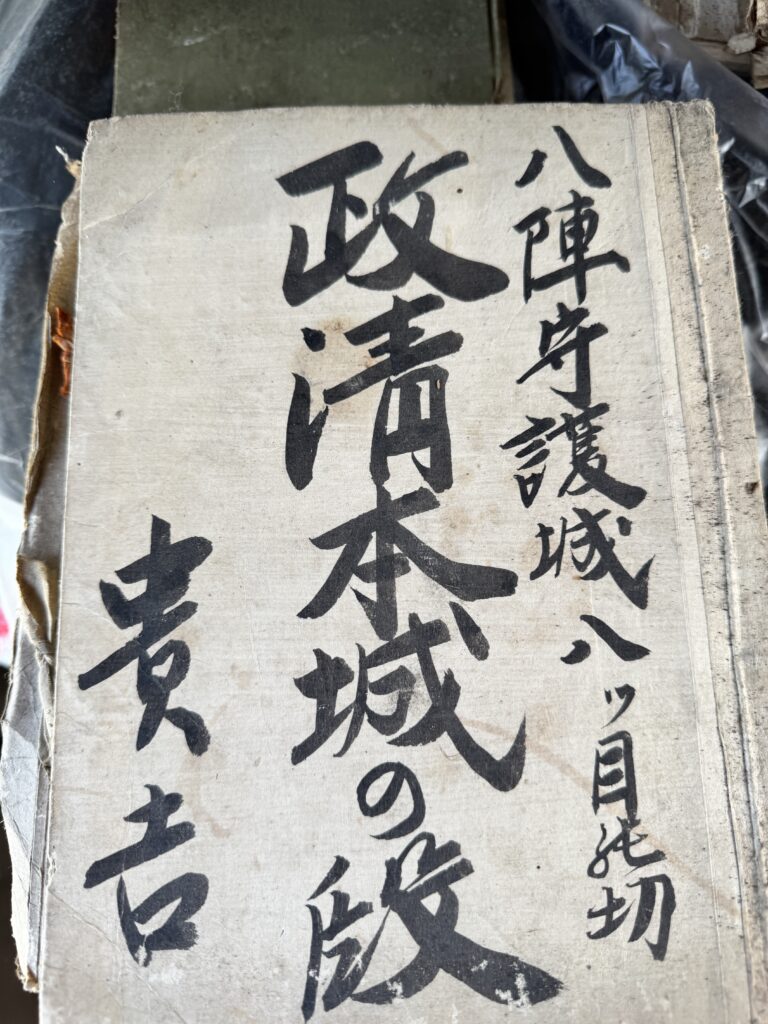 八陣守護城 八ツ目の切
政清本城の段
貴吉